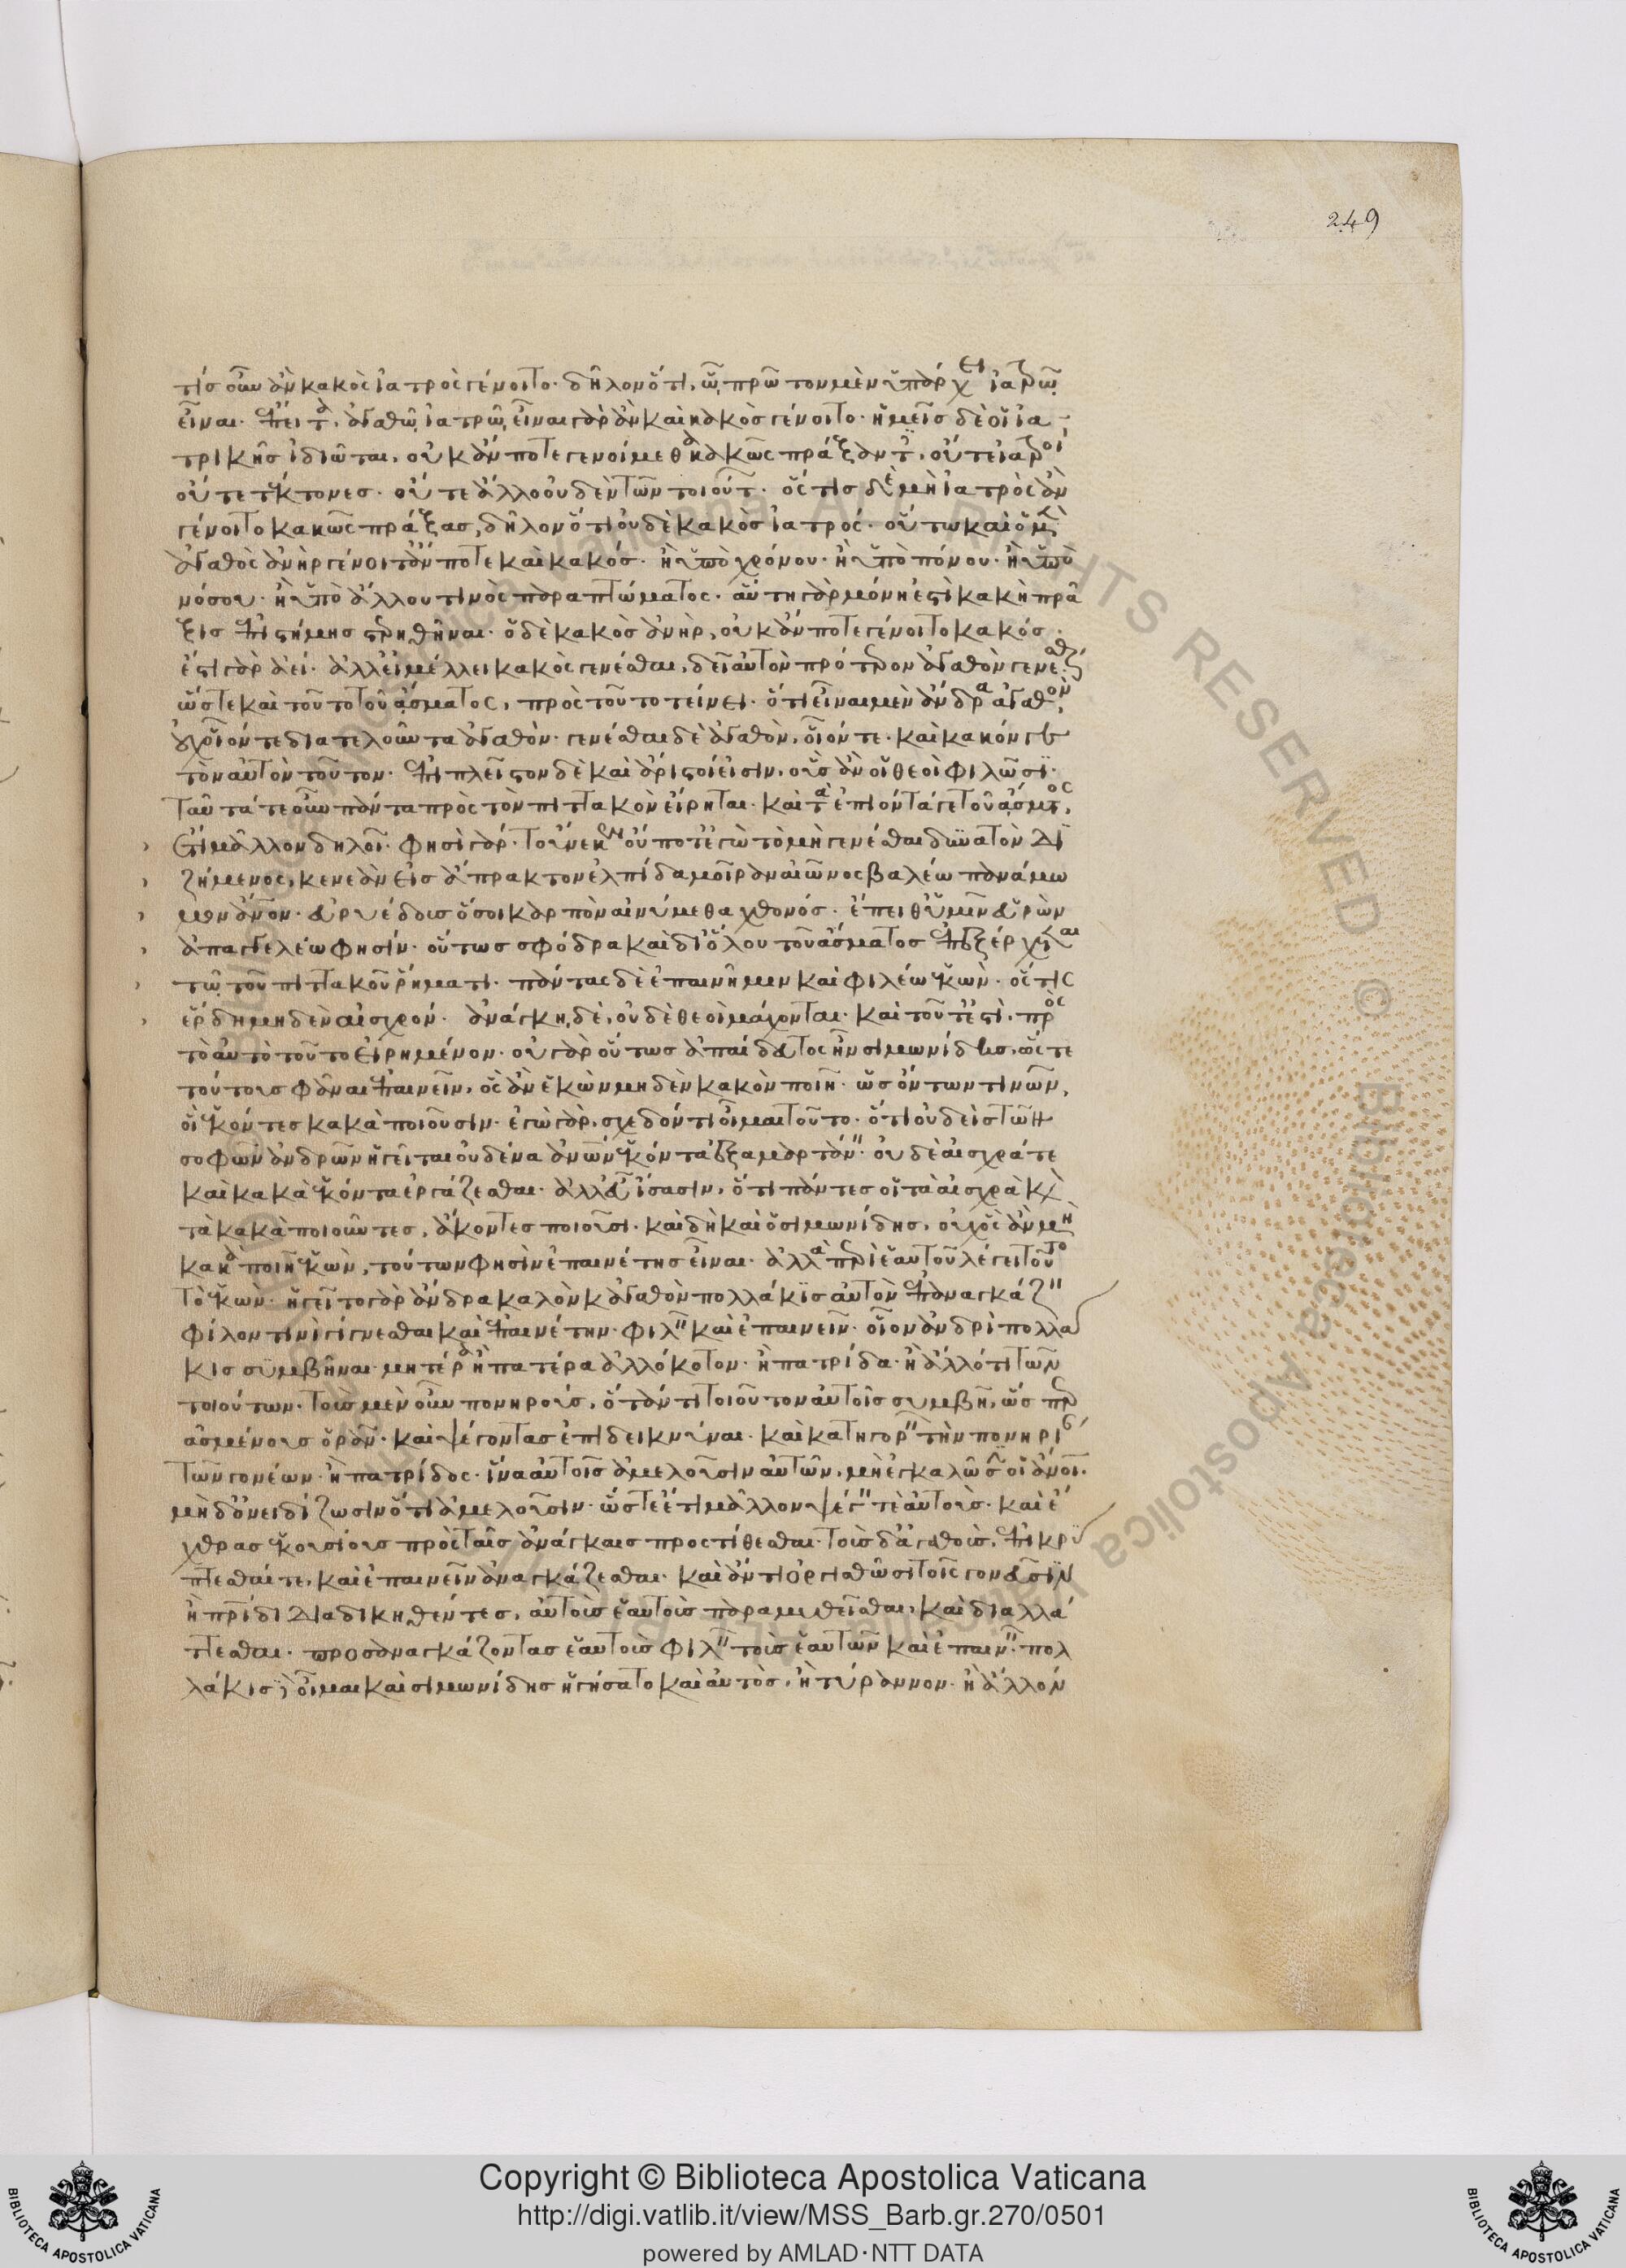 249
τίσ οὖν ἂν κακὸς ἰατρὸς γένοιτο· δῆλον ὅτι, ᾧ πρῶτον μὲν ὑπάρχει ἰατρῷ
εἶναι· ἔπειτα, ἀγαθῷ ἰατρῷ, εἶναι γὰρ ἂν καὶ κακὸσ γένοιτο· ἡμεῖσ δὲ οἱ ἰα
τρικῆσ ἰδιῶται, οὐκ ἄν ποτε γενοίμεθα κακῶς πράξαντ, οὔτε ἰατροί
οὔτε τέκτονεσ· οὔτε ἄλλο οὐδὲν τῶν τοιούτ· ὅς τισ δὲ μὴ ἰατρὸς ἂν
γένοιτο κακῶς πράξασ, δῆλον ὅτι οὐδὲ κακὸσ ἰατρός· οὕτω καὶ ὁ μὲν
ἀγαθὸς ἀνὴρ γένοιτ' ἄν ποτε καὶ κακόσ· ἢ ὑπὸ χρόνου· ἢ ὑπὸ πόνου· ἢ ὑπὸ
νόσου· ἢ ὑπὸ ἄλλου τινὸς παραπτώματος· αὕτη γὰρ μόνη ἐστὶ κακὴ πρᾶ
ξισ ἐπιστήμησ στερηθῆναι· ὁ δὲ κακὸσ ἀνὴρ, οὐκ ἄν ποτε γένοιτο κακόσ·
ἔστι γὰρ ἀεί· ἀλλ' εἰ μέλλει κακὸς γενέσθαι, δεῖ αὐτὸν πρότερον ἀγαθὸν γενέσθαι
ὥστε καὶ τοῦτο τοῦ ᾄσματος, πρὸς τοῦτο τείνει· ὅτι εἶναι μὲν ἄνδρα ἀγαθὸν,
οὐχ οἷόν τε διατελοῦντα ἀγαθόν· γενέσθαι δὲ ἀγαθὸν, οἷόν τε· καὶ κακόν γε
τὸν αὐτὸν τοῦτον· ἐπιπλεῖστον δὲ καὶ ἄριστοί εἰσιν, οὓσ ἂν οἱ θεοὶ φιλῶσι·
ταῦτά τε οὖν πάντα πρὸς τὸν πιττακὸν εἴρηται· καὶ τὰ ἐπιόντα γε τοῦ ᾄσματος,
ἔτι μᾶλλον δηλοῖ· φησὶ γάρ· τοὔνεκεν οὔ ποτ' ἐγὼ τὸ μὴ γενέσθαι δυνατὸν δι
ζήμενος, κενεὰν εἰσ ἄπρακτον ἐλπίδα μοῖραν αἰῶνος βαλέω πανάμω
μον ἄνον· εὐρυέδουσ ὅσοι καρπὸν αἰνύμεθα χθονόσ· ἔπειθ' ὑμῖν εὑρὼν
ἀπαγγελέω φησίν· οὕτωσ σφόδρα καὶ δι' ὅλου τοῦ ᾄσματοσ ἐπεξέρχεται
τῷ τοῦ πιττακοῦ ῥήματι· πάντας δὲ ἐπαίνημεν καὶ φιλέω ἑκὼν· ὅς τις
ἔρδη μηδὲν αἰσχρόν· ἀνάγκη, δὲ, οὐδὲ θεοὶ μάχονται· καὶ τοῦτ' ἐστὶ, πρὸς
τὸ αὐτὸ τοῦτο εἰρημένον· οὐ γὰρ οὕτωσ ἀπαίδευτος ἦν σιμωνίδησ, ὥς τε
τούτουσ φάναι ἐπαινεῖν, ὃς ἂν ἑκὼν μηδὲν κακὸν ποιῆ· ὡσ ὄντων τινῶν,
οἳ ἑκόντεσ κακὰ ποιοῦσιν· ἐγὼ γὰρ, σχεδόν τι οἶμαι τοῦτο· ὅτι οὐδεὶσ τῶν
σοφῶν ἀνδρῶν ἡγεῖται οὐδένα ἀνων ἑκόντα ἐξαμαρτάν· οὐδὲ αἰσχρά τε
καὶ κακὰ ἑκόντα ἐργάζεσθαι· ἀλλ' εὖ ἴσασιν, ὅτι πάντεσ οἱ τὰ αἰσχρὰ καὶ
τὰ κακὰ ποιοῦντεσ, ἄκοντεσ ποιοῦσι· καὶ δὴ καὶ ὁ σιμωνίδησ, οὐχ ὃς ἂν μὴ
κακὰ ποιῆ ἑκὼν, τούτων φησὶν ἐπαινέτησ εἶναι· ἀλλὰ περὶ ἑαυτοῦ λέγει τοῦτο
τὸ ἑκών· ἡγεῖτο γὰρ ἄνδρα καλὸν κἀγαθὸν πολλάκισ αὑτὸν ἐπαναγκάζειν
φίλον τινὶ γίγνεσθαι καὶ ἐπαινέτην· φιλεῖν καὶ ἐπαινεῖν· οἷον ἀνδρὶ πολλὰ
κισ συμβῆναι μητέρα ἢ πατέρα ἀλλόκοτον· ἢ πατρίδα· ἢ ἄλλό τι τῶν
τοιούτων· τοὺσ μὲν οὖν πονηρούσ, ὅταν τι τοιοῦτον αὐτοῖσ συμβῆ, ὥσπερ
ἀσμένουσ ὁρᾶν· καὶ ψέγοντασ ἐπιδεικνύναι· καὶ κατηγορεῖν τὴν πονηρί
τῶν γονέων· ἢ πατρίδος· ἵνα αὐτοῖσ ἀμελοῦσιν αὐτῶν, μὴ ἐγκαλῶσιν οἱ ἄνοι·
μὴ δ' ὀνειδίζωσιν ὅτι ἀμελοῦσιν· ὥστε ἔτι μᾶλλον ψέγειν τε αὐτοὺσ· καὶ ἔ
χθρασ ἑκουσίουσ πρὸς ταῖσ ἀνάγκαισ προστίθεσθαι· τοὺσ δ' ἀγαθοὺσ, ἐπικρύ
πτεσθαί τε, καὶ ἐπαινεῖν ἀναγκάζεσθαι· καὶ ἄν τι ὀργισθῶσι τοῖς γονεῦσιν
ἢ πρίδι ἀδικηθέντεσ, αὐτοὺσ ἑαυτοὺσ παραμυθεῖσθαι, καὶ διαλλά
ττεσθαι· προσαναγκάζοντασ ἑαυτοὺσ φιλεῖν τοὺσ ἑαυτῶν καὶ ἐπαινεῖν· πολ
λάκισ δὲ οἶμαι καὶ σιμωνίδησ ἡγήσατο καὶ αὐτὸσ, ἢ τύραννον· ἢ ἄλλον
Copyright © Biblioteca Apostolica Vaticana
http://digi.vatlib.it/view/MSS_Barb.gr.270/0501
powered by AMLAD·NTT DATA